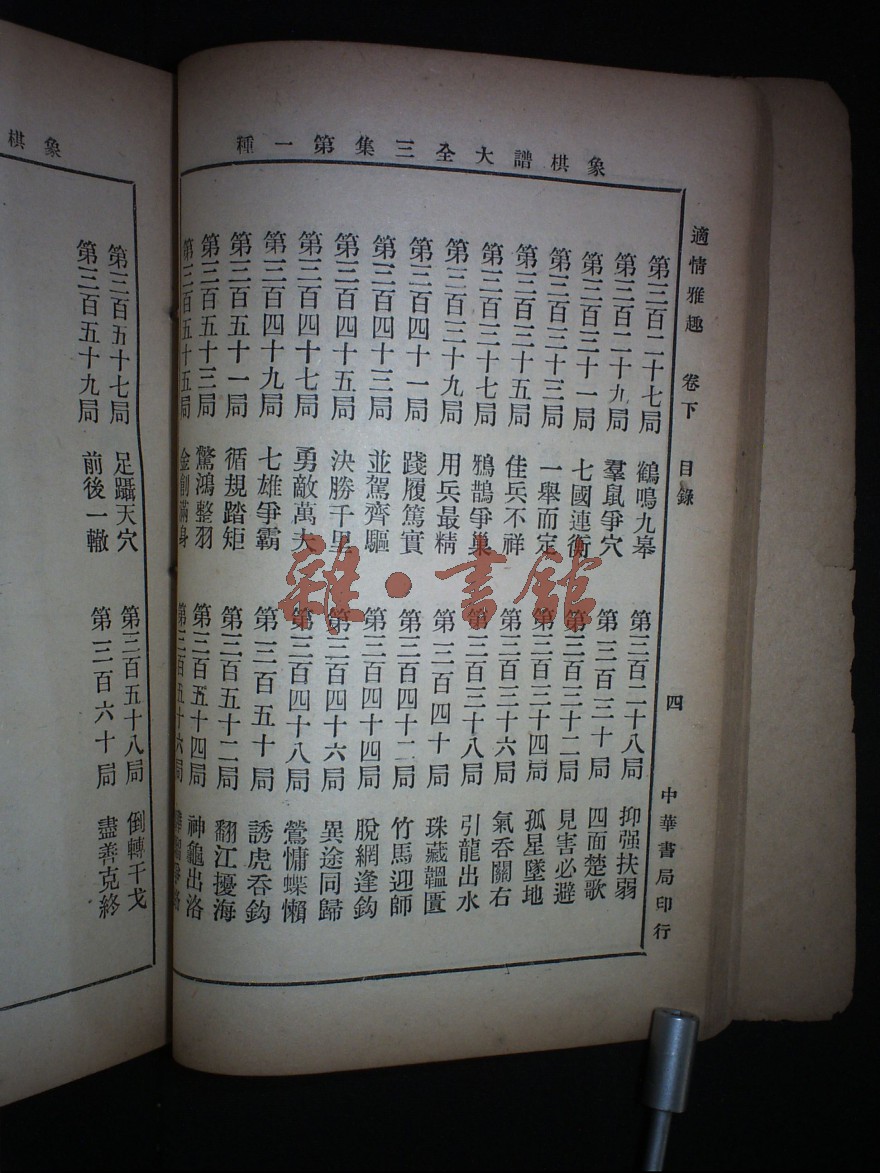 象棋譜大全三集第一種
適情雅趣 卷下 目錄 四 中華書局印行
第三百二十七局 鶴鳴九皋 第三百二十八局 抑强扶弱
第三百二十九局 羣鼠爭穴 第三百三十局 四面楚歌
第三百三十一局 七國連衡 第三百三十二局 見害必避
第三百三十三局 一舉而定 第三百三十四局 孤星墜地
第三百三十五局 佳兵不祥 第三百三十六局 氣吞關右
第三百三十七局 鴉鵲爭巢 第三百三十八局 引龍出水
第三百三十九局 用兵最精 第三百四十局 珠藏韞匱
第三百四十一局 踐履篤實 第三百四十二局 竹馬迎師
第三百四十三局 並駕齊驅 第三百四十四局 脫網逢鈎
第三百四十五局 決勝千里 第三百四十六局 異途同歸
第三百四十七局 勇敵萬夫 第三百四十八局 鶯慵蝶懶
第三百四十九局 七雄爭霸 第三百五十局 誘虎吞鈎
第三百五十一局 循規踏矩 第三百五十二局 翻江擾海
第三百五十三局 驚鴻整羽 第三百五十四局 神龜出洛
第三百五十五局 金創滿身 第三百五十六局
象棋
第三百五十七局 足躡天穴 第三百五十八局 倒轉干戈
第三百五十九局 前後一轍 第三百六十局 盡善克終
雜·書館